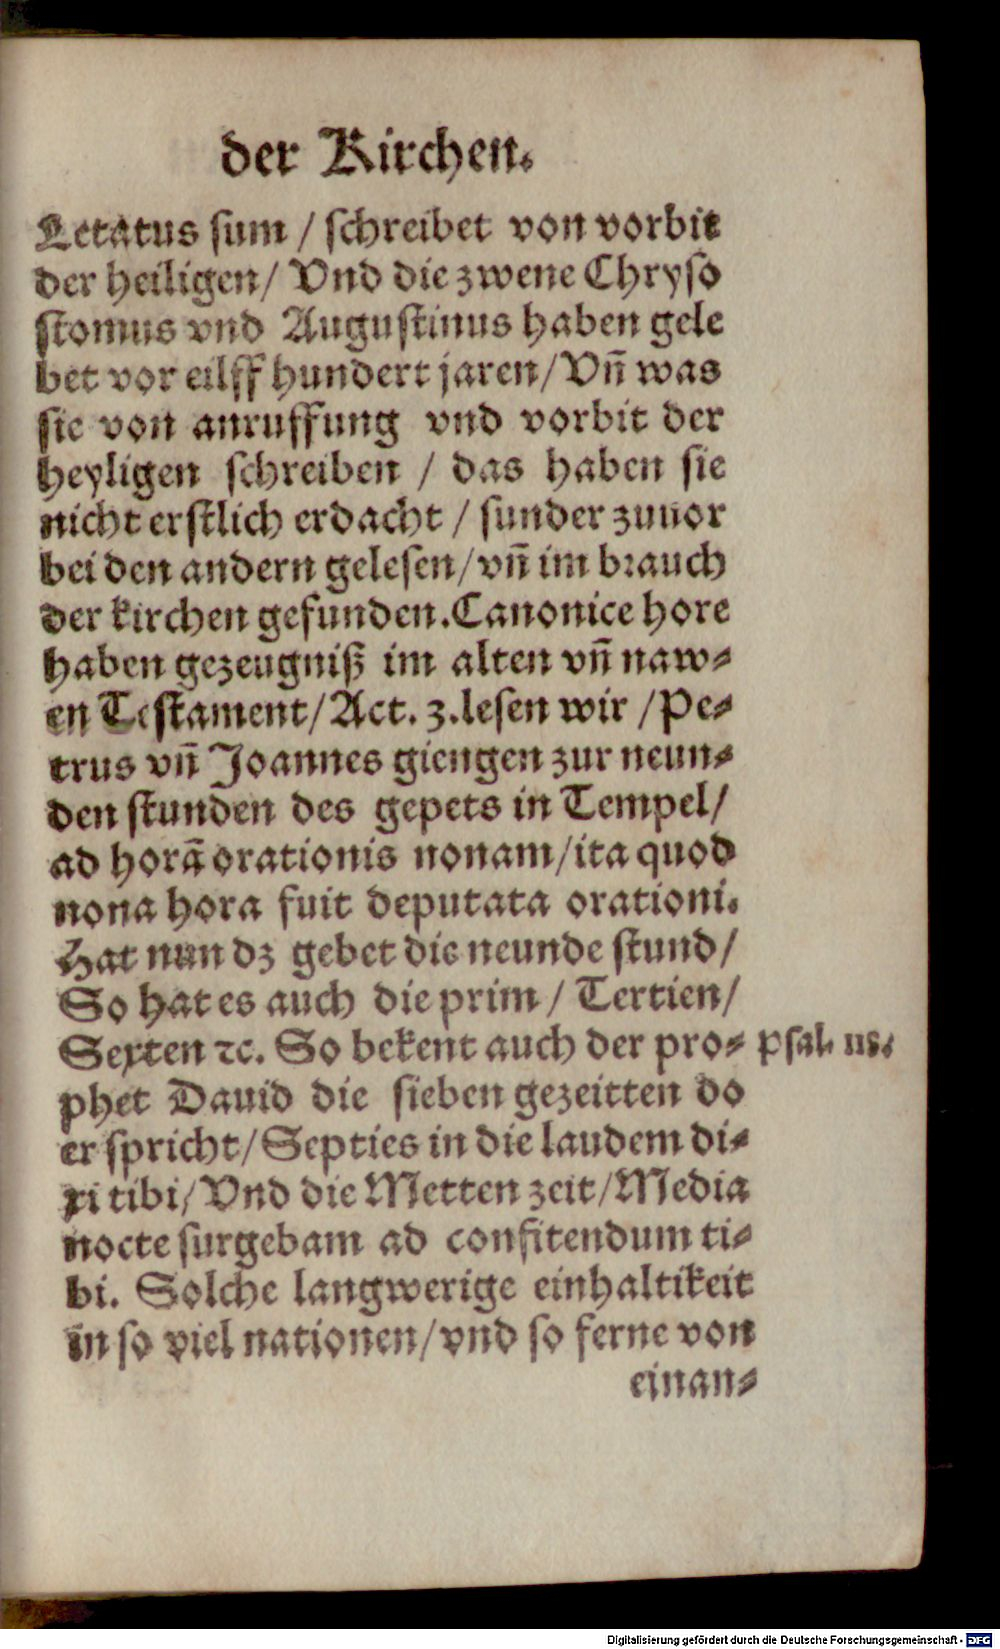 der Kirchen.
Letatus sum / schreibet von vorbit
der heiligen/ Vnd die zwene Chryso
stomus vnd Augustinus haben gele
bet vor eilff hundert jaren/Vñ was
sie von anruffung vnd vorbit der
heyligen schreiben / das haben sie
nicht erstlich erdacht / sunder zuuor
bei den andern gelesen/vñ im brauch
der kirchen gefunden.Canonice hore
haben gezeugniß im alten vñ naw-
en Testament/Act. 3.lesen wir /Pe-
trus vñ Joannes giengen zur neun-
den stunden des gepets in Tempel/
ad horã orationis nonam/ita quod
nona hora fuit deputata orationi.
Hat nun dz gebet die neunde stund/
So hat es auch die prim / Tertien/
Sexten ꝛc. So bekent auch der pro- psal. 118.
phet Dauid die sieben gezeitten do
er spricht/Septies in die laudem di-
xi tibi/Vnd die Metten zeit/Media
nocte surgebam ad confitendum ti-
bi. Solche langwerige einhaltikeit
in so viel nationen/vnd so ferne von
einan-
Digitalisierung gefördert durch die Deutsche Forschungsgemeinschaft - DFG